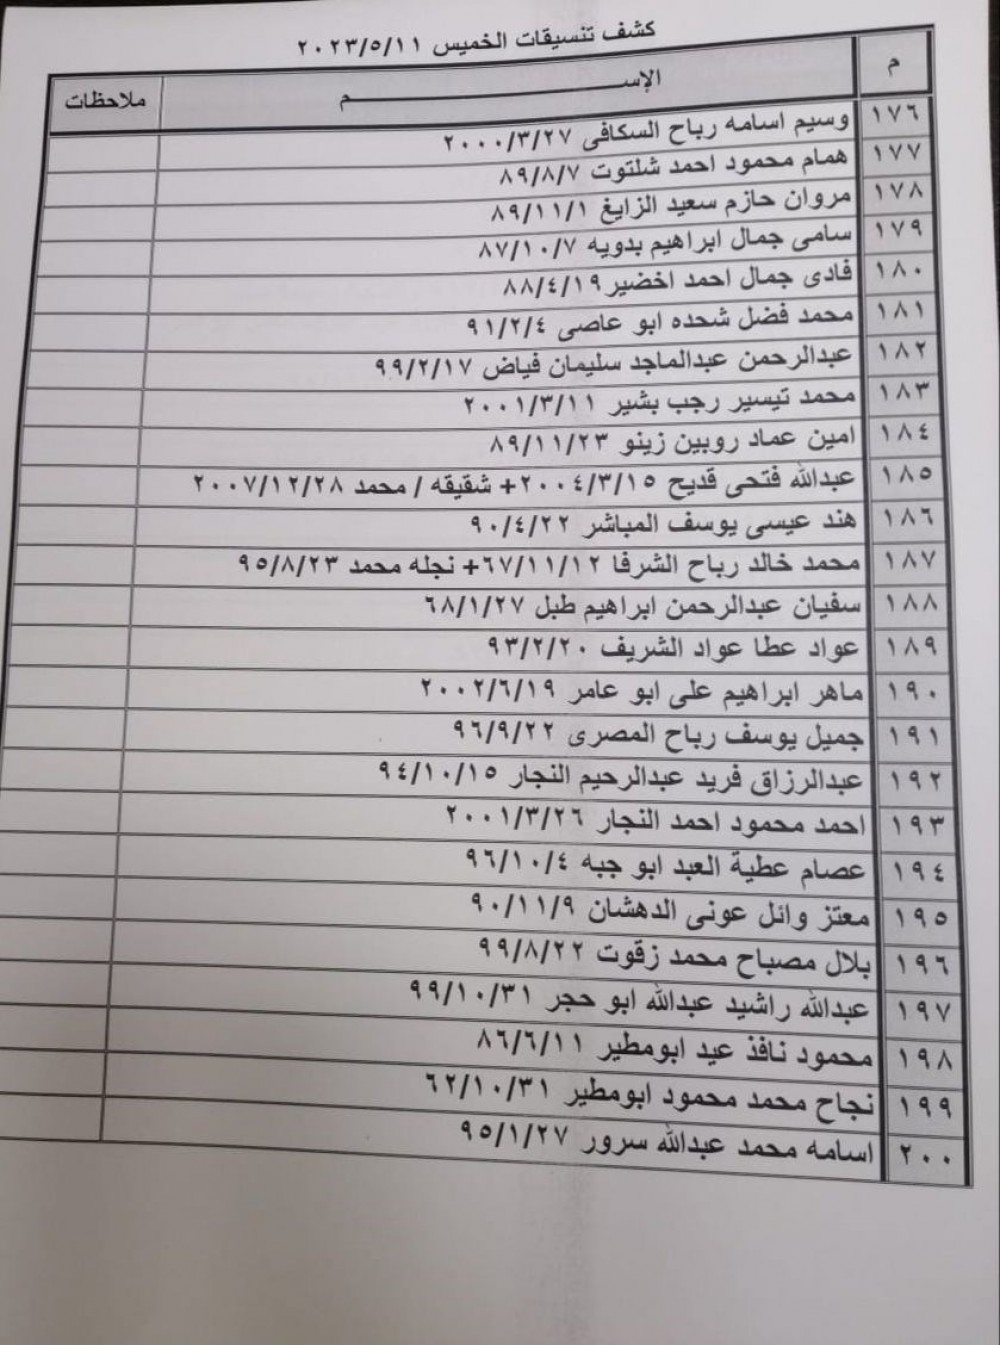 كشف تنسيقات الخميس ٢٠٢٣/٥/١١
م الإســـــم ملاحظات
١٧٦ وسيم اسامه رباح السكافى ٢٠٠٠/٣/٢٧
١٧٧ همام محمود احمد شلتوت ٨٩/٨/٧
١٧٨ مروان حازم سعيد الزايغ ٨٩/١١/١
١٧٩ سامى جمال ابراهيم بدويه ٨٧/١٠/٧
١٨٠ فادى جمال احمد اخضير ٨٨/٤/١٩
١٨١ محمد فضل شحده ابو عاصى ٩١/٢/٤
١٨٢ عبدالرحمن عبدالماجد سليمان فياض ٩٩/٢/١٧
١٨٣ محمد تيسير رجب بشير ٢٠٠١/٣/١١
١٨٤ امين عماد روبين زينو ٨٩/١١/٢٣
١٨٥ عبدالله فتحى قديح ٢٠٠٤/٣/١٥+ شقيقه / محمد ٢٠٠٧/١٢/٢٨
١٨٦ هند عيسى يوسف المباشر ٩٠/٤/٢٢
١٨٧ محمد خالد رباح الشرفا ٦٧/١١/١٢+ نجله محمد ٩٥/٨/٢٣
١٨٨ سفيان عبدالرحمن ابراهيم طبل ٦٨/١/٢٧
١٨٩ عواد عطا عواد الشريف ٩٣/٢/٢٠
١٩٠ ماهر ابراهيم على ابو عامر ٢٠٠٢/٦/١٩
١٩١ جميل يوسف رباح المصرى ٩٦/٩/٢٢
١٩٢ عبدالرزاق فريد عبدالرحيم النجار ٩٤/١٠/١٥
١٩٣ احمد محمود احمد النجار ٢٠٠١/٣/٢٦
١٩٤ عصام عطية العبد ابو جبه ٩٦/١٠/٤
١٩٥ معتز وائل عونى الدهشان ٩٠/١١/٩
١٩٦ بلال مصباح محمد زقوت ٩٩/٨/٢٢
١٩٧ عبدالله راشيد عبدالله ابو حجر ٩٩/١٠/٣١
١٩٨ محمود نافذ عيد ابومطير ٨٦/٦/١١
١٩٩ نجاح محمد محمود ابومطير ٦٢/١٠/٣١
٢٠٠ اسامه محمد عبدالله سرور ٩٥/١/٢٧